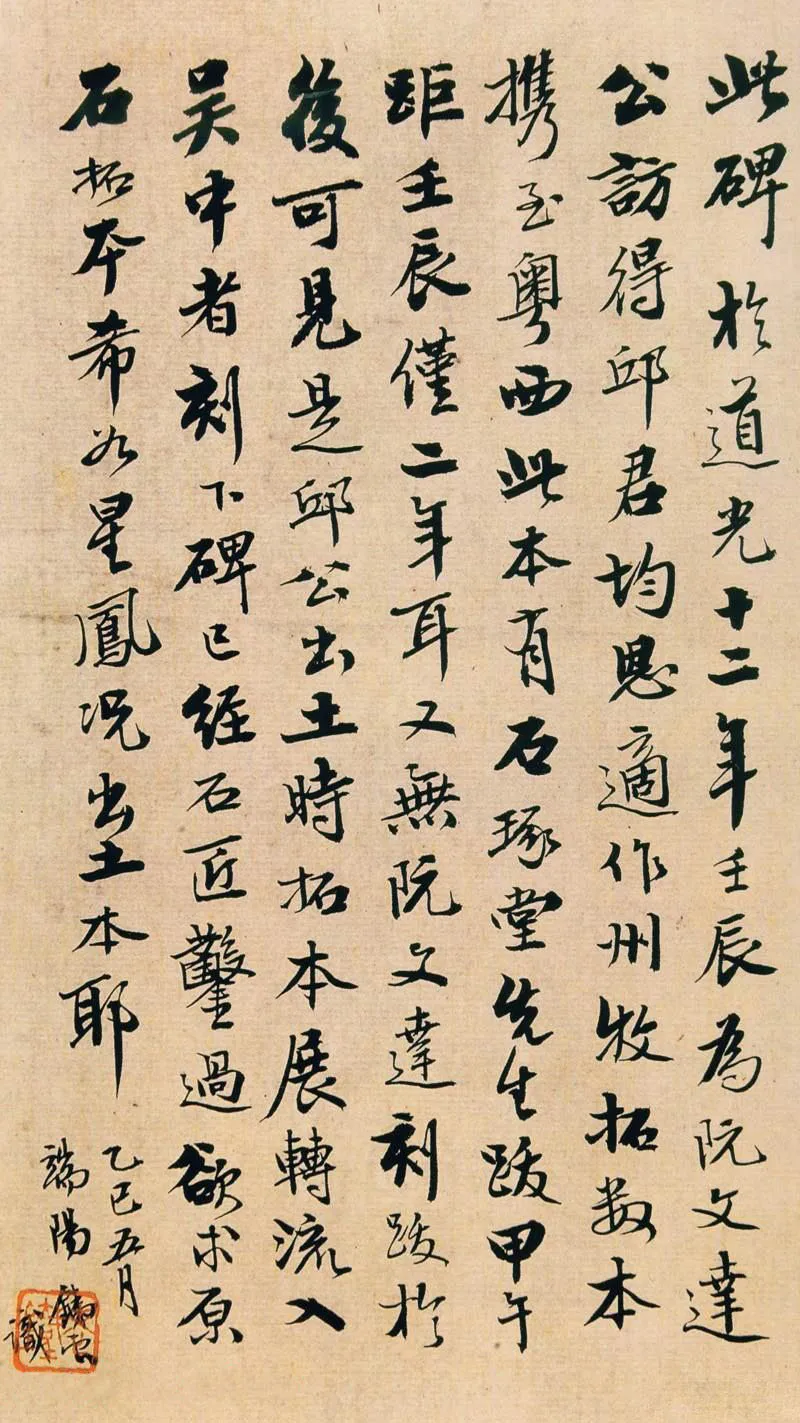 此碑於道光十二年壬辰為阮文達
公訪得邱君均恩適作州牧拓数本
携至粵西此本有石琢堂先生跋甲午
距壬辰僅二年耳又無阮文達刻跋於
後可見是邱公出土時拓本展轉流入
吴中者刻下碑已經石匠鑿過欲求原
石拓本希如星鳳况出土本耶
乙巳五月
端陽
識